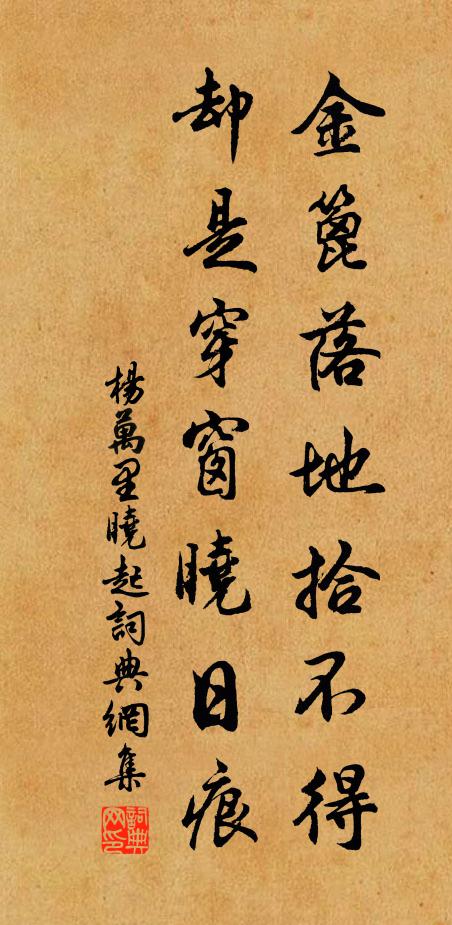 金篦落地拾不得
却是穿窗曉日痕
楊萬里曉起詞典網集
詞典網印